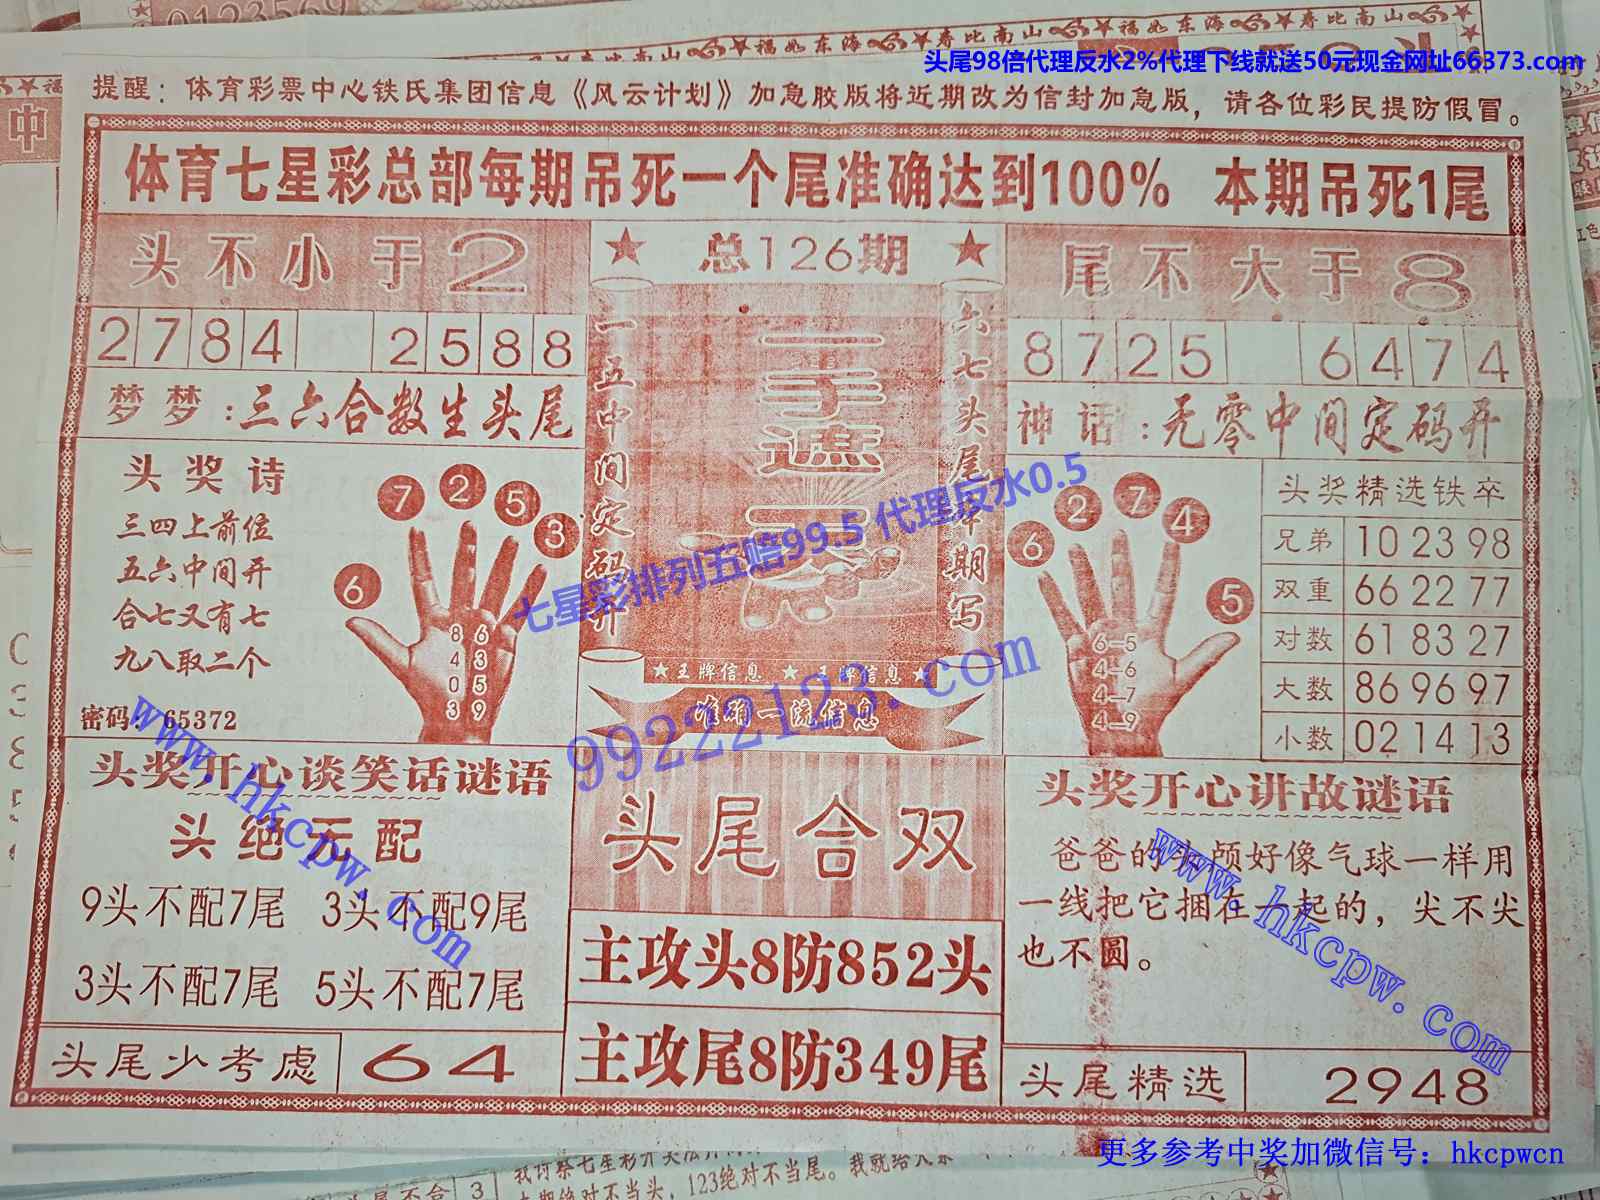 0123569
福如东海 寿比南山 福如东海 寿比南山
头尾98倍代理反水2%代理下线就送50元现金网址66373.com
提醒：体育彩票中心铁氏集团信息《风云计划》加急胶版将近期改为信封加急版，请各位彩民提防假冒。
中
体育七星彩总部每期吊死一个尾准确达到100% 本期吊死1尾
头不小于2
★ 总126期 ★
尾不大于8
2784 2588
8725 6474
一五中间定码开
一手遮天
六七头尾本期写
梦梦：三六合数生头尾
神话：无零中间定码开
头奖诗
三四上前位
五六中间开
合七又有七
九八取二个
密码：65372
6 7 2 5 3
8 6
4 3
0 5
3 9
6 2 7 4 5
6-5
4-6
4-7
4-9
头奖精选铁卒
兄弟 10 23 98
双重 66 22 77
对数 61 83 27
大数 86 96 97
小数 02 14 13
七星彩排列五赔99.5 代理反水0.5
★王牌信息 ★王牌信息★
准确一流信息
99222123.com
www.hkcpw.com
头奖开心谈笑话谜语
头绝无配
9头不配7尾 3头不配9尾
3头不配7尾 5头不配7尾
头尾少考虑 64
头尾合双
主攻头8防852头
主攻尾8防349尾
头奖开心讲故谜语
爸爸的头颅好像气球一样用
一线把它捆在一起的，尖不尖
也不圆。
www.hkcpw.com
头尾精选 2948
更多参考中奖加微信号：hkcpwcn
123绝对不当尾。我就给大家